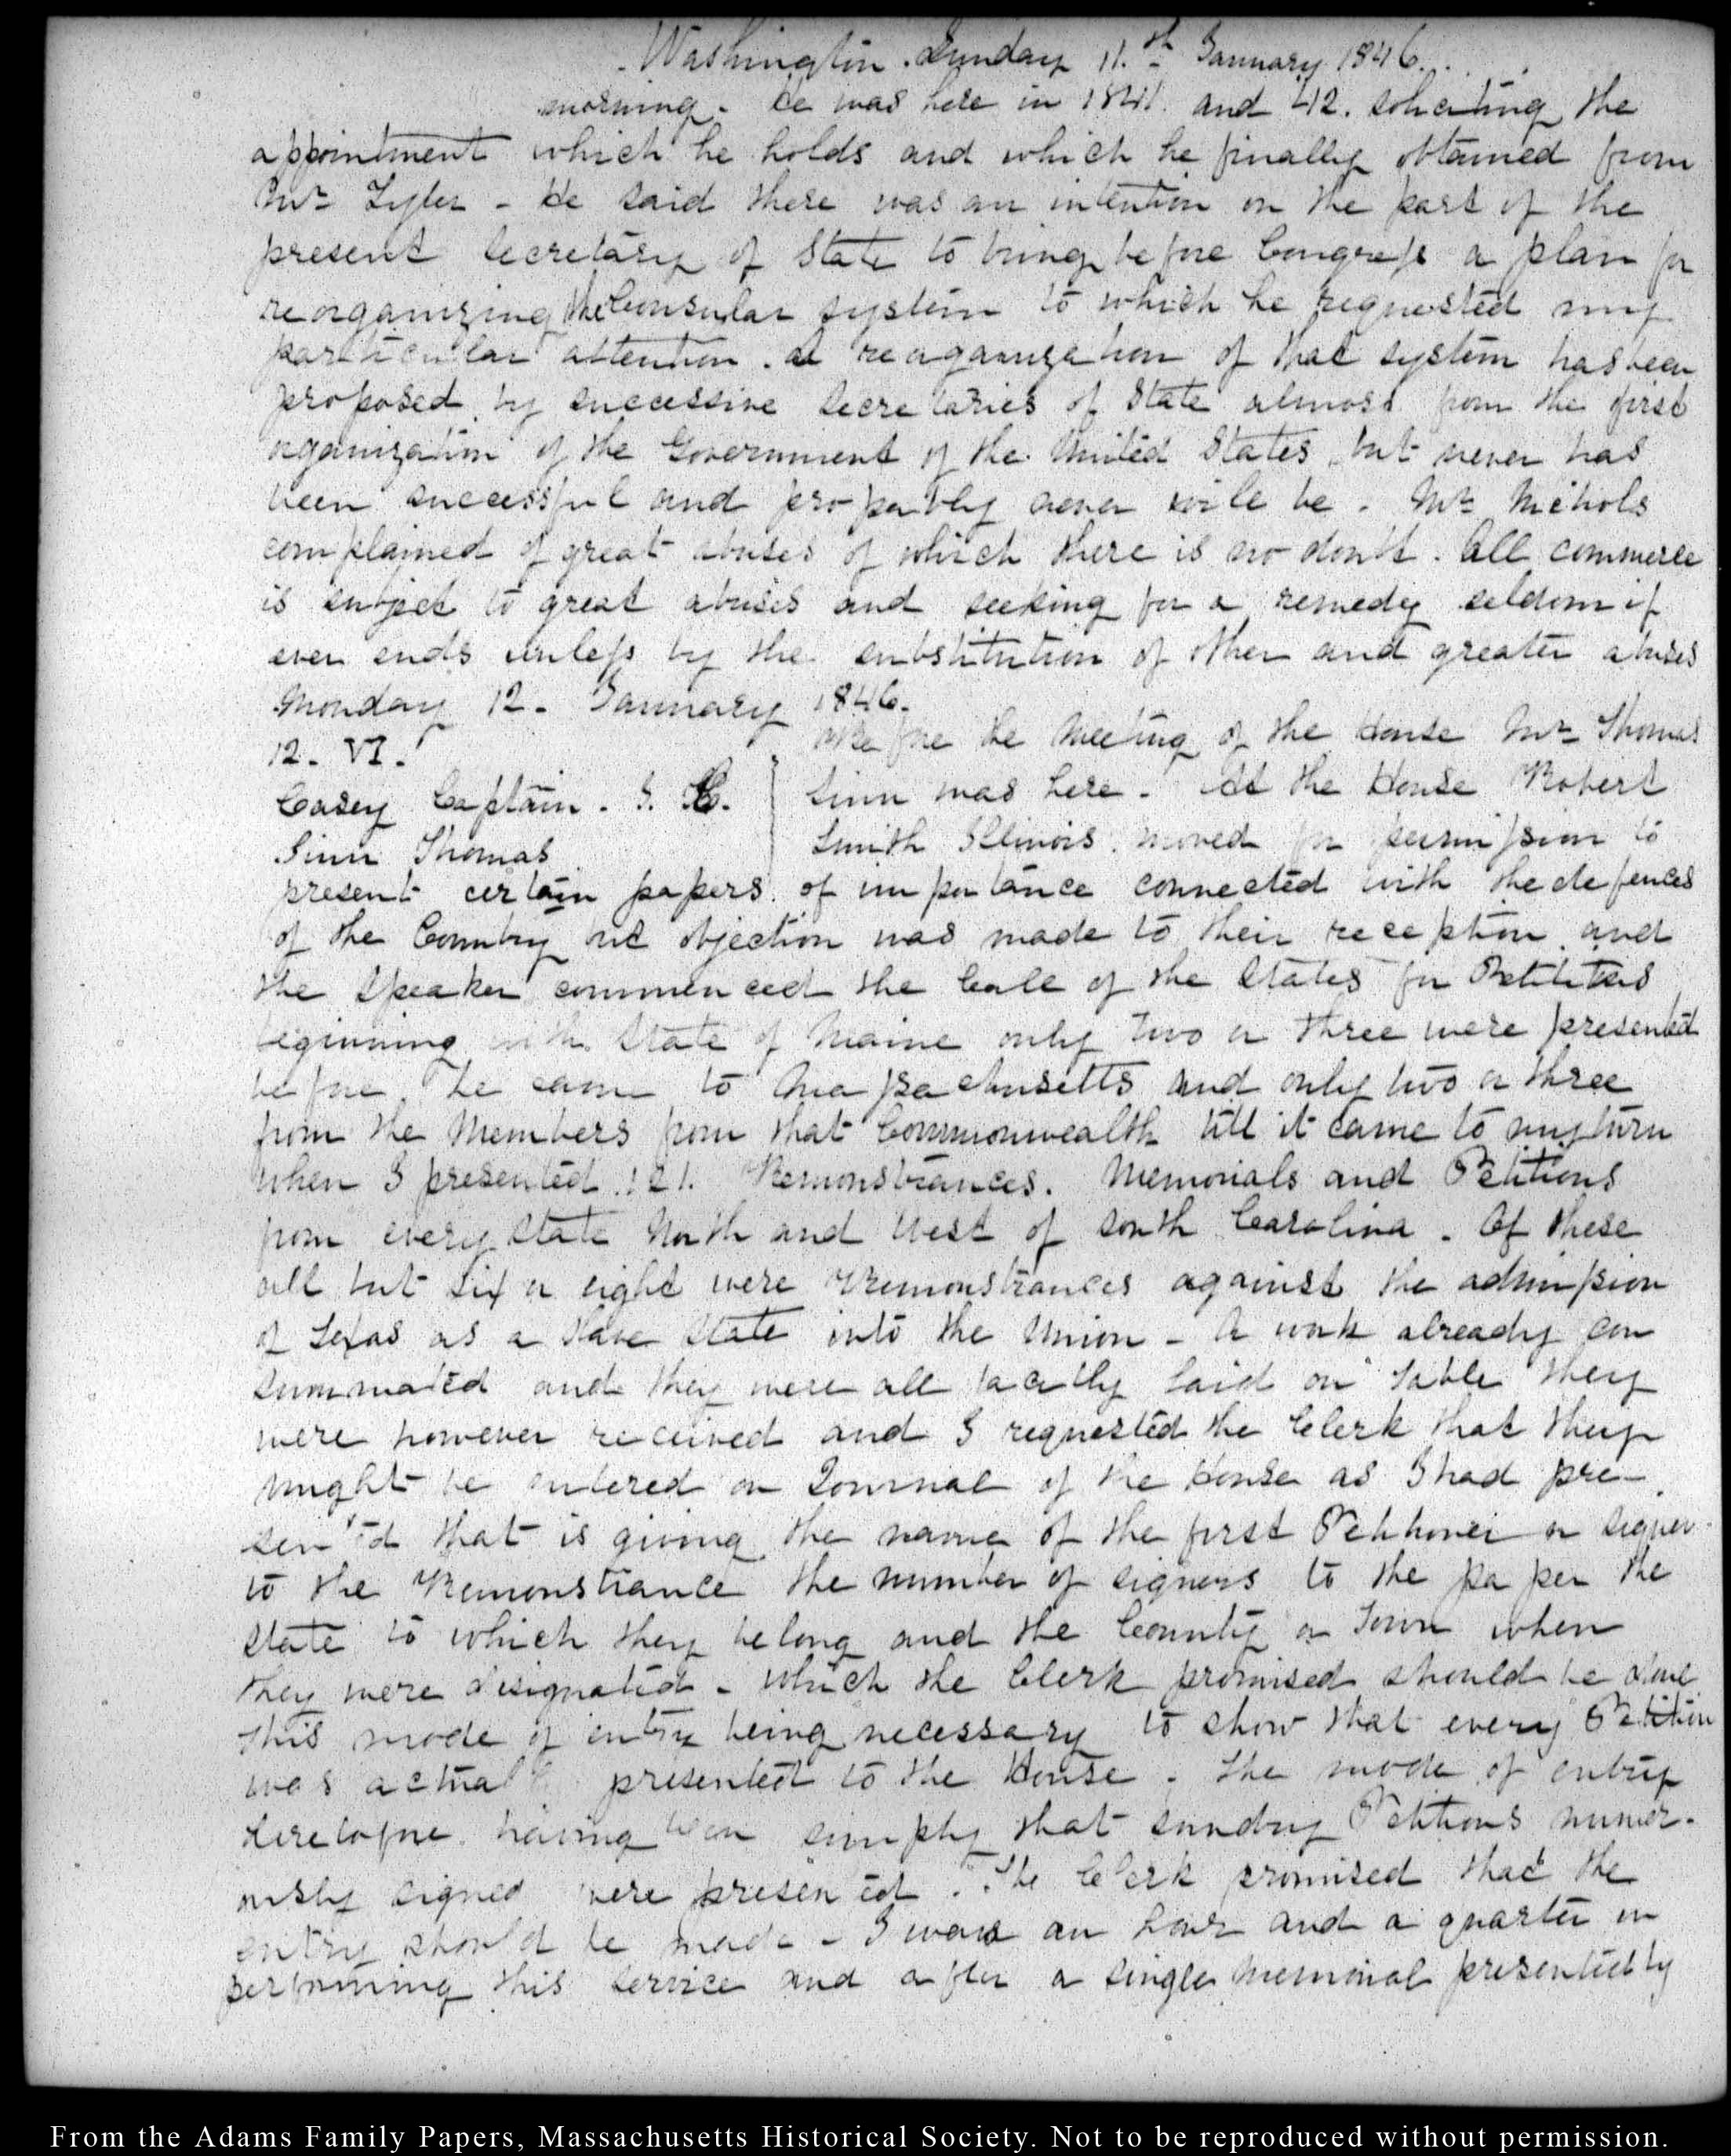 Washington. Sunday 11.th January 1846.
morning. He was here in 1841. and 42. soliciting the
appointment which he holds and which he finally obtained from
Mr Tyler - He said there was an intention on the part of the
present Secretary of State to bring before Congress a plan for
reorganizing the Consular system to which he requested my
particular attention. A reorganization of that system has been
proposed by successive Secretaries of State almost from the first
organization of the Government of the United States, but never has
been successful and propably never will be. Mr Nichols
complained of great abuses of which there is no doubt. All commerce
is subject to great abuses and seeking for a remedy seldom if
ever ends unless by the substitution of other and greater abuses
Monday 12. January 1846.
12. VI.
Before the Meeting of the House Mr Thomas
Casey Captain. J. C.
Sinn was here. At the House Robert
Sinn Thomas
Smith Illinois. moved for permission to
present certain papers of importance connected with the defences
of the Country but objection was made to their reception and
the Speaker commenced the Call of the States for Petitions
beginning with State of Maine only two or three were presented
before he came to Massachusetts and only two or three
from the Members from that Commonwealth till it came to my turn
when I presented 121. Remonstrances. Memorials and Petitions
from every State North and West of South Carolina. Of these
all but six or eight were Remonstrances against the admission
of Texas as a Slave State into the Union - A work already con
summated and they were all tacitly laid on table they
were however received and I requested the Clerk that they
might be entered on Journal of the House as I had pre-
sented that is giving the name of the first Petitioner or signer
to the Remonstrance the number of signers to the paper the
State to which they belong and the County or Town when
they were designated - which the Clerk promised should be done
this mode of entry being necessary to show that every Petition
was actually presented to the House. The mode of entry
heretofore having been simply that sundry Petitions numer-
ously signed were presented. The Clerk promised that the
entry should be made - I was an hour and a quarter in
performing this service and after a single memorial presented by
From the Adams Family Papers, Massachusetts Historical Society. Not to be reproduced without permission.